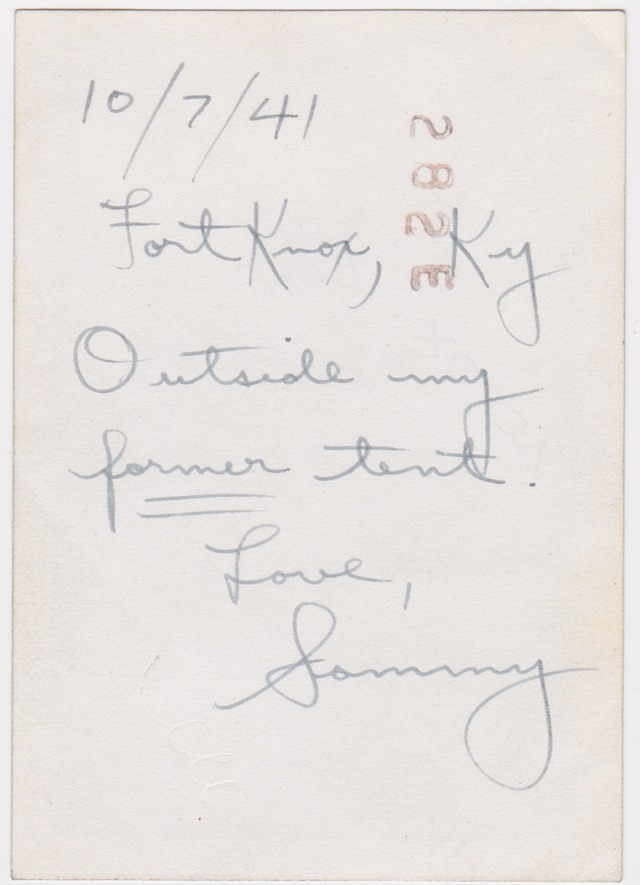 10/7/41
282E
Fort Knox, Ky
Outside my
former tent.
Love,
Sammy